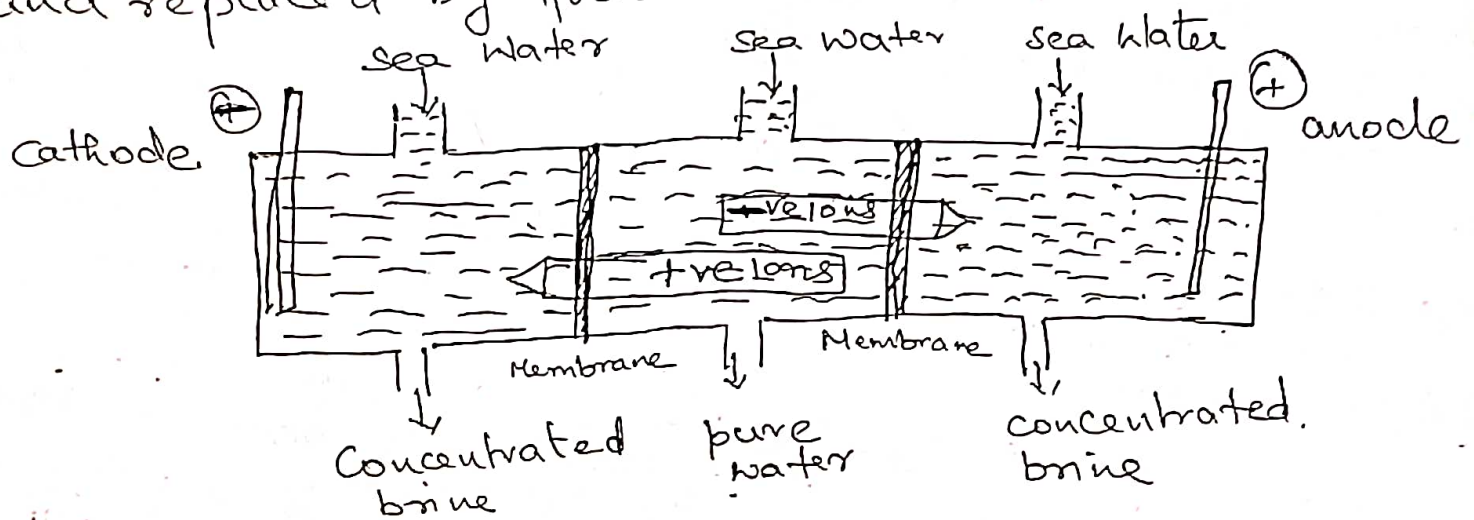 and replaced by
sea water
sea water
sea water
cathode
+
anode
-ve ions
+ve ions
Membrane
Membrane
Concentrated
brine
pure
water
concentrated.
brine